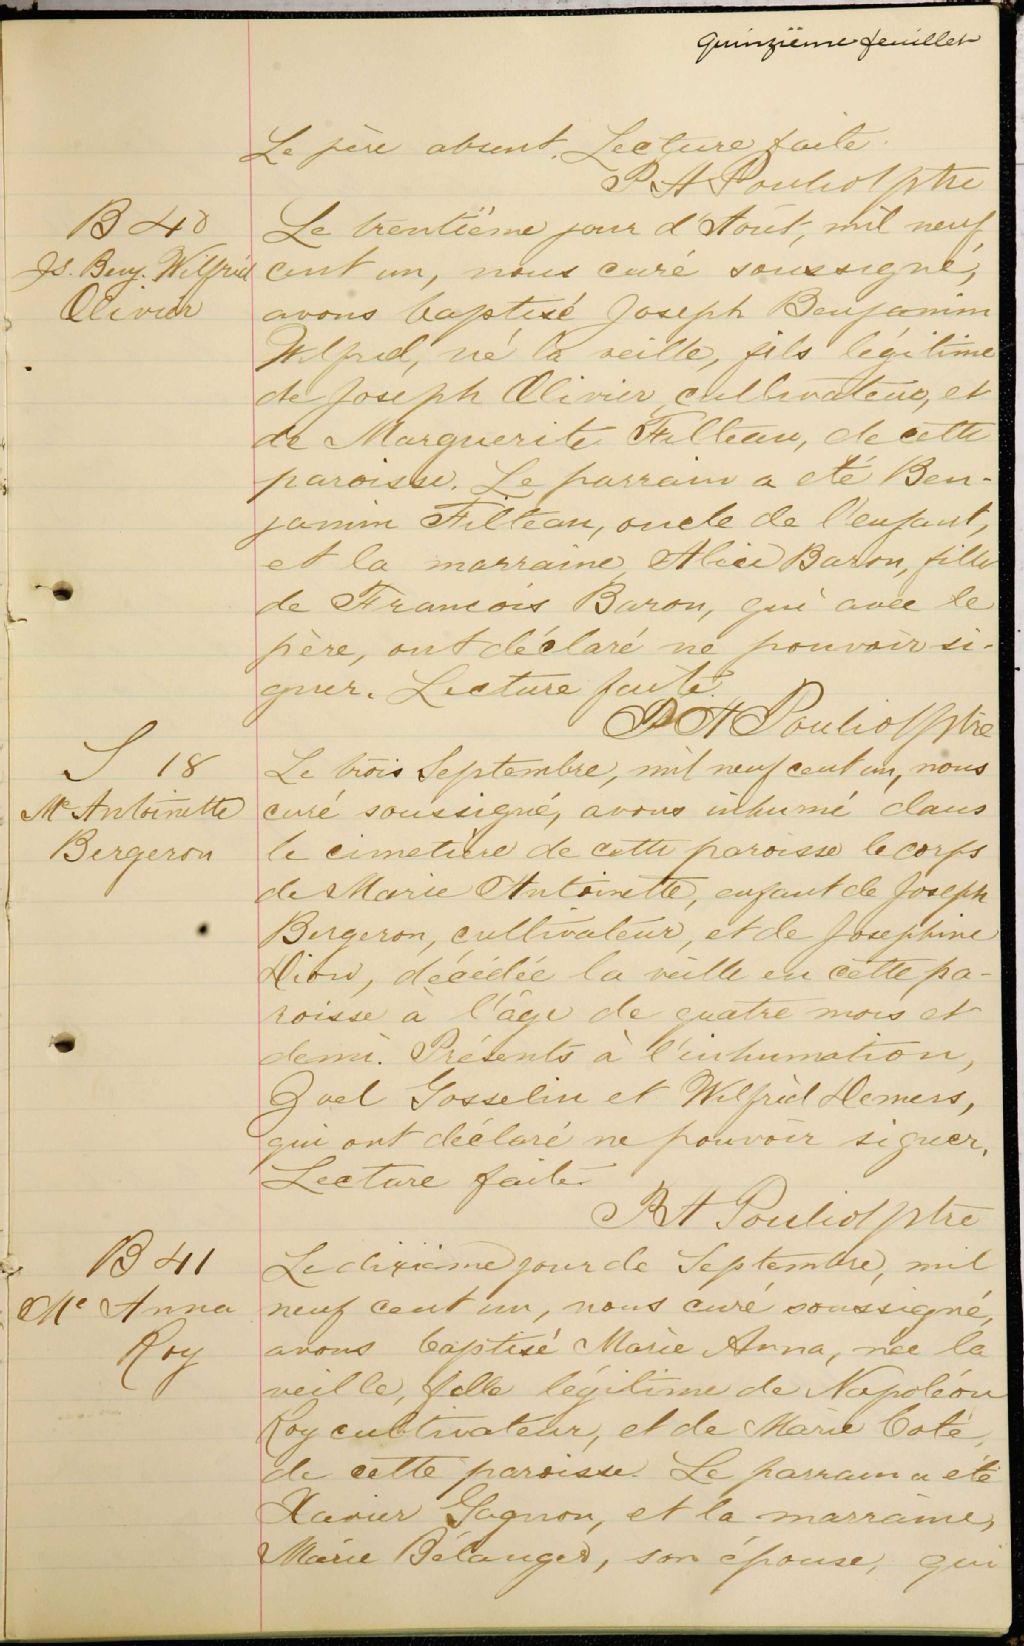 quinzième feuillet
Le père absent. Lecture faite.
P A Pouliot ptre
B 40
Js. Benj. Wilfrid
Olivier
Le trentième jour d'Août, mil neuf
cent un, nous curé soussigné,
avons baptisé Joseph Benjamin
Wilfrid, né la veille, fils légitime
de Joseph Olivier, cultivateur, et
de Marguerite Filteau, de cette
paroisse. Le parrain a été Ben-
jamin Filteau, oncle de l'enfant,
et la marraine, Alice Baron, fille
de François Baron, qui avec le
père, ont déclaré ne pouvoir si-
gner. Lecture faite.
P A Pouliot ptre
S 18
Me Antoinette
Bergeron
Le trois Septembre, mil neuf cent un, nous
curé soussigné, avons inhumé dans
le cimetière de cette paroisse le corps
de Marie Antoinette, enfant de Joseph
Bergeron, cultivateur, et de Josephine
Dion, décédée la veille en cette pa-
roisse à l'âge de quatre mois et
demi. Présents à l'inhumation,
Joel Gosselin et Wilfrid Demers,
qui ont déclaré ne pouvoir signer.
Lecture faite.
P A Pouliot ptre
B 41
Me Anna
Roy
Le dixième jour de Septembre, mil
neuf cent un, nous curé soussigné,
avons baptisé Marie Anna, née la
veille, fille légitime de Napoléon
Roy cultivateur, et de Marie Coté,
de cette paroisse. Le parrain a été
Xavier Gagnon, et la marraine,
Marie Bélanger, son épouse, qui